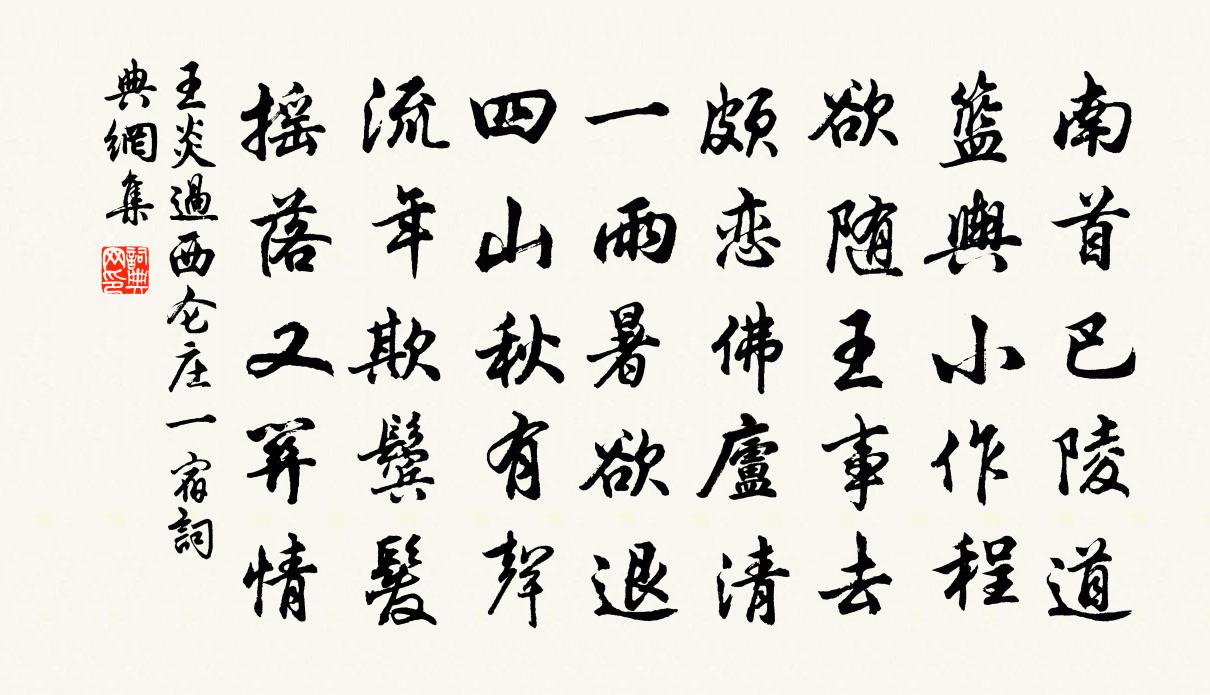 南首巴陵道
籃輿小作程
欲随王事去
頗恋佛廬清
一雨暑欲退
四山秋有聲
流年欺鬢髮
摇落又關情
王炎過西仑庄一宿詞
典網集
詞典网印